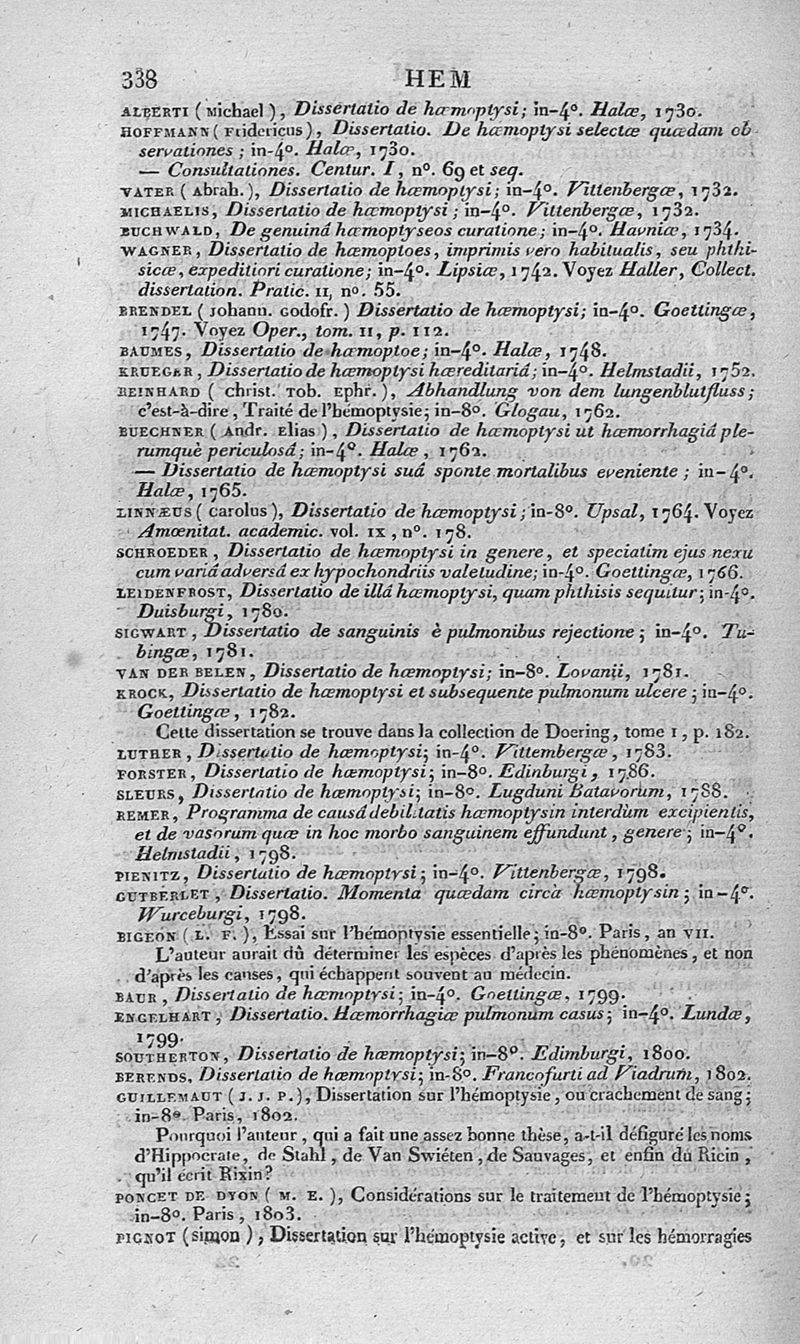 338 HEM
ALBERTI ( Michael ), Dissertatio de hæmoptysi; in-4°. Halæ, 1730.
HOFFMANN ( Fridericus ), Dissertatio. De hæmoptysi selectæ quædam ob
servationes ; in-4°. Halæ, 1730.
— Consultationes. Centur. I, n°. 69 et seq.
VATER ( Abrah. ), Dissertatio de hæmoptysi; in-4°. Vittenbergæ, 1732.
MICHAELIS, Dissertatio de hæmoptysi ; in-4°. Vittenbergæ, 1732.
BUCHWALD, De genuinâ hæmoptyseos curatione; in-4°. Havniæ, 1734.
WAGNER, Dissertatio de hæmoptoes, imprimis vero habitualis, seu phthi-
sicæ, expeditiori curatione; in-4°. Lipsiæ, 1742. Voyez Haller, Collect.
dissertation. Pratic. II, n°. 55.
BRENDEL ( Johann. Godofr. ) Dissertatio de hæmoptysi; in-4°. Goettingæ,
1747. Voyez Oper., tom. II, p. 112.
BAUMES, Dissertatio de hæmoptoe; in-4°. Halæ, 1748.
KRUEGER, Dissertatio de hæmoptysi hæreditariâ; in-4°. Helmstadii, 1752.
REINHARD ( Christ. Tob. Ephr. ), Abhandlung von dem lungenblutfluss;
c'est-à-dire, Traité de l'hémoptysie; in-8°. Glogau, 1762.
BUECHNER ( Andr. Elias ), Dissertatio de hæmoptysi ut hæmorrhagiâ ple-
rumquè periculosâ; in-4°. Halæ, 1762.
— Dissertatio de hæmoptysi suâ sponte mortalibus eveniente ; in-4°.
Halæ, 1765.
LINNÆUS ( Carolus ), Dissertatio de hæmoptysi ; in-8°. Upsal, 1764. Voyez
Amœnitat. academic. vol. IX, n°. 178.
SCHROEDER, Dissertatio de hæmoptysi in genere, et speciatim ejus nexu
cum variâ adversâ ex hypochondriis valetudine; in-4°. Goettingæ, 1766.
LEIDENFROST, Dissertatio de illâ hæmoptysi, quam phthisis sequitur; in-4°.
Duisburgi, 1780.
SIGWART, Dissertatio de sanguinis è pulmonibus rejectione ; in-4°. Tu-
bingæ, 1781.
VAN DER BELEN, Dissertatio de hæmoptysi; in-8°. Lovanii, 1781.
KROCK, Dissertatio de hæmoptysi et subsequente pulmonum ulcere ; in-4°.
Goettingæ, 1782.
Cette dissertation se trouve dans la collection de Doering, tome I, p. 182.
LUTHER, Dissertatio de hæmoptysi; in-4°. Vittembergæ, 1783.
FORSTER, Dissertatio de hæmoptysi; in-8°. Edinburgi, 1786.
SLEURS, Dissertatio de hæmoptysi; in-8°. Lugduni Batavorum, 1788.
REMER, Programma de causâ debilitatis hæmoptysin interdùm excipientis,
et de vasorum quæ in hoc morbo sanguinem effundunt, genere ; in-4°.
Helmstadii, 1798.
PIENITZ, Dissertatio de hæmoptysi; in-4°. Vittenbergæ, 1798.
GUTBERLET, Dissertatio. Momenta quædam circà hæmoptysin ; in-4°.
Wurceburgi, 1798.
BIGEON ( L. F. ), Essai sur l'hémoptysie essentielle; in-8°. Paris, an VII.
L'auteur aurait dû déterminer les espèces d'après les phénomènes, et non
d'après les causes, qui échappent souvent au médecin.
BAUR, Dissertatio de hæmoptysi; in-4°. Goettingæ, 1799.
ENGELHART, Dissertatio. Hæmorrhagiæ pulmonum casus; in-4°. Lundæ,
1799.
SOUTHERTON, Dissertatio de hæmoptysi; in-8°. Edimburgi, 1800.
BERENDS, Dissertatio de hæmoptysi; in-8°. Francofurti ad Viadrum, 1802.
GUILLEMAUT ( J. J. P. ), Dissertation sur l'hémoptysie, ou crachement de sang;
in-8°. Paris, 1802.
Pourquoi l'auteur, qui a fait une assez bonne thèse, a-t-il défiguré les noms
d'Hippocrate, de Stahl, de Van Swiéten, de Sauvages, et enfin du Ricin,
qu'il écrit Rixin?
PONCET DE DYON ( M. E. ), Considérations sur le traitement de l'hémoptysie;
in-8°. Paris, 1803.
PIGNOT (Simon ), Dissertation sur l'hémoptysie active, et sur les hémorragies